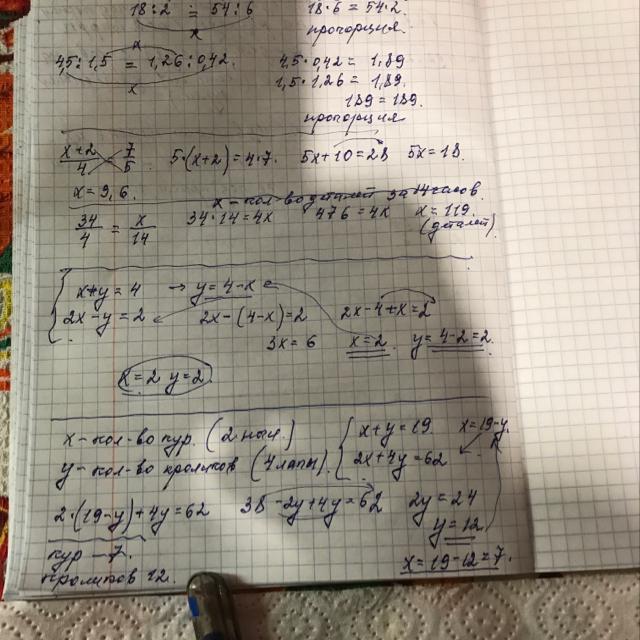 18:2 = 54:6 18·6 = 54·2
x пропорция.
x
4,5:1,5 = 1,26:0,42. 4,5·0,42 = 1,89
x 1,5·1,26 = 1,89.
189 = 189.
пропорция
x+2/4 7/5 5·(x+2)=4·7. 5x+10=28 5x=18.
x=3,6. x - кол-во деталей за 14 часов.
34/4 = x/14 34·14=4x 476=4x x=119.
(деталей)
x+y=4 → y=4-x
2x-y=2 2x-(4-x)=2 2x-4+x=2
3x=6 x=2 y=4-2=2.
x=2 y=2
x - кол-во кур. (2 ноги) x+y=19 x=19-y
y - кол-во кроликов (4 лапы). 2x+4y=62
2·(19-y)+4y=62 38-2y+4y=62 2y=24
y=12
кур - 7. x=19-12=7.
кроликов 12.